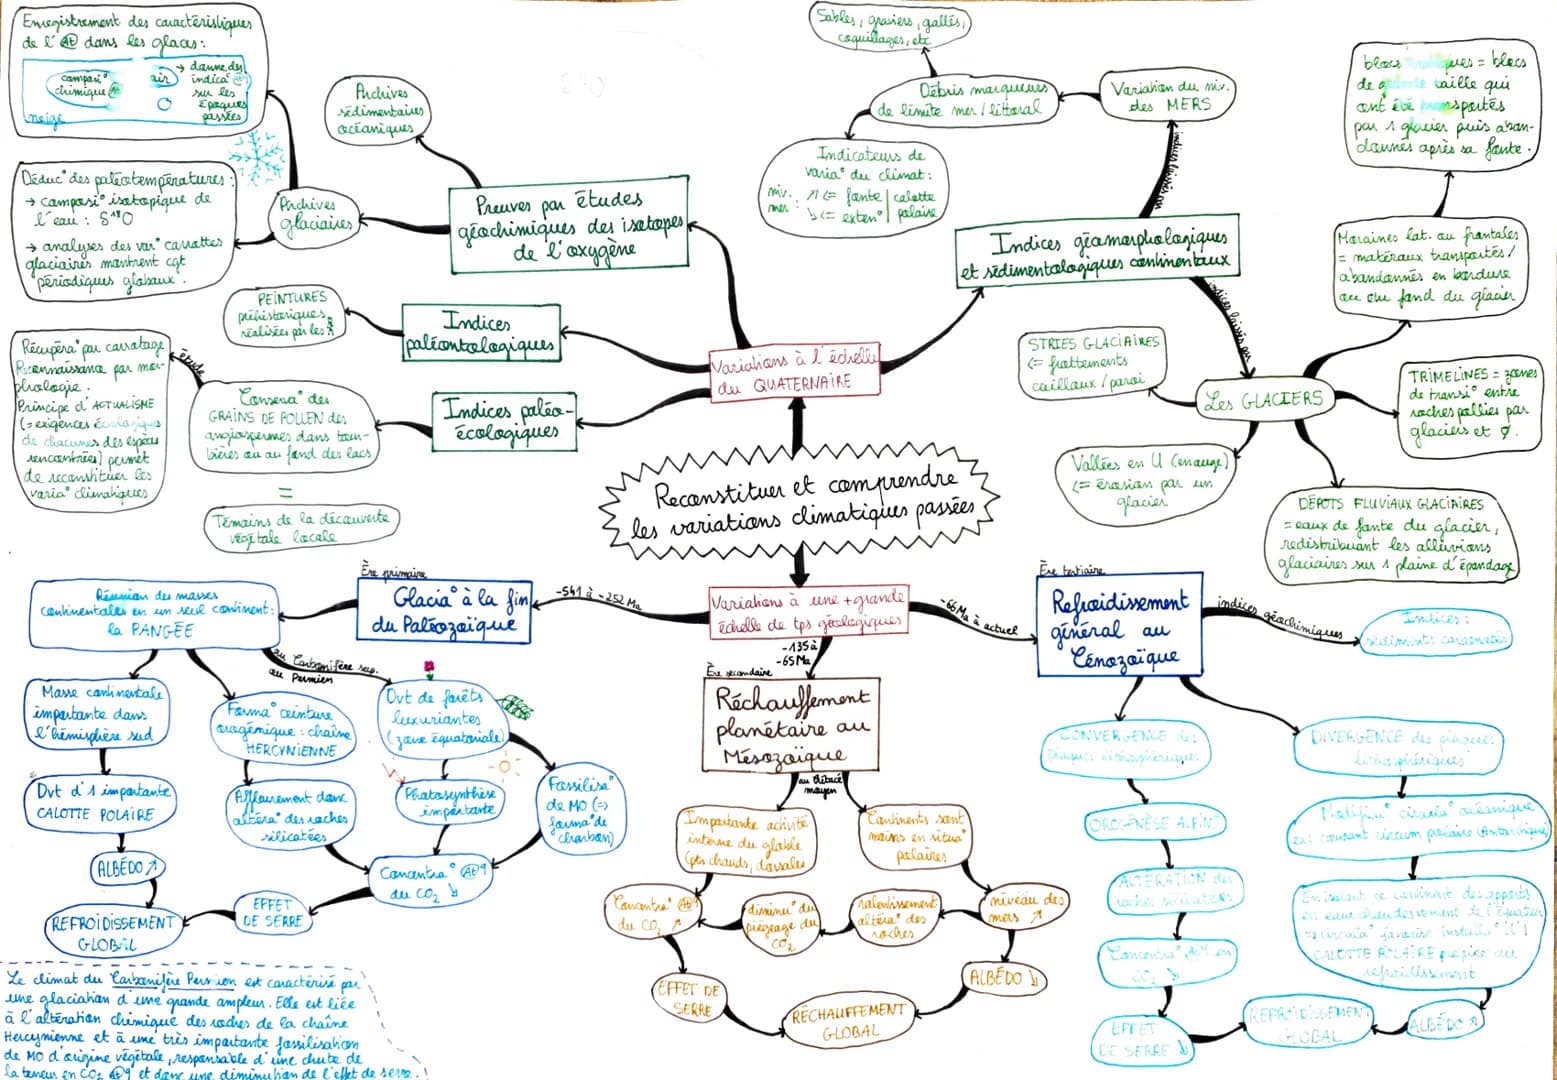 Enregistrement des caractéristiques
de l'At dans les glaces :
composi° chimique At
air
→ donne des
indica° At
sur les
époques
passées
neige
Archives
sédimentaires
océaniques
Déduc° des paléotempératures :
→ composi° isotopique de
l'eau : δ¹⁸O
→ analyses des var° carottes
glaciaires montrent cgt
périodiques globaux.
Archives
glaciaires
Preuves par études
géochimiques des isotopes
de l'oxygène
PEINTURES
préhistoriques
réalisées par les
Indices
paléontologiques
Récupéra° par carottage
Reconnaissance par mor-
phologie.
Principe d'ACTUALISME
(= exigences écologiques
de chacunes des espèces
rencontrées) permet
de reconstituer les
varia° climatiques
étude
Conserva° des
GRAINS DE POLLEN des
angiospermes dans tour-
bières ou au fond des lacs
=
Témoins de la découverte
végétale locale
Indices paléo-
écologiques
Variations à l'échelle
du QUATERNAIRE
Sables, graviers, gallés,
coquillages, etc
Débris marqueurs
de limite mer / littoral
Variation du niv.
des MERS
Indicateurs de
varia° du climat :
niv. mer : ↗ <= fonte / calotte
↘ <= exten° / polaire
Indices géomorphologiques
et sédimentologiques continentaux
indices laissés par
Les GLACIERS
STRIES GLACIAIRES
<= frottements
cailloux / paroi
Vallées en U (en auge)
<= érosion par un
glacier
DÉPOTS FLUVIAUX GLACIAIRES
= eaux de fonte du glacier,
redistribuant les alluvions
glaciaires sur 1 plaine d'épandage
TRIMELINES = zones
de transi° entre
roches pollies par
glaciers et Ø.
Moraines lat. ou frontales
= matéraux transportés /
abandonnés en bordure
ou au fond du glacier
blocs = blocs
de taille qui
ont été transportés
par 1 glacier puis aban-
donnés après sa fonte.
Reconstituer et comprendre
les variations climatiques passées
Variations à une + grande
échelle de tps géologiques
-541 à -252 Ma
Ère primaire
Glacia° à la fin
du Paléozoïque
Réunion des masses
continentales en un seul continent :
la PANGÉE
au Carbonifère sup.
au Permien
Masse continentale
importante dans
l'hémisphère sud
Dvt d'1 importante
CALOTTE POLAIRE
ALBÉDO ↗
REFROIDISSEMENT
GLOBAL
Forma° ceinture
orogénique : chaîne
HERCYNIENNE
Affleurement donc
altéra° des roches
silicatées
Dvt de forêts
luxuriantes
(zone équatoriale)
Photosynthèse
importante
Fossilisa°
de MO (=>
forma° de
charbon)
Concentra° At
du CO₂ ↘
EFFET
DE SERRE
Le climat du Carbonifère Permien est caractérisé par
une glaciation d'une grande ampleur. Elle est liée
à l'altération chimique des roches de la chaîne
Hercynienne et à une très importante fossilisation
de MO d'origine végétale, responsable d'une chute de
la teneur en CO₂ At et donc une diminution de l'effet de serre.
-135 à
-65 Ma
Ère secondaire
Réchauffement
planétaire au
Mésozoïque
au Crétacé
moyen
Importante activité
interne du globe
(pts chauds, dorsales
Continents sont
moins en situa°
polaires
Concentra° At
du CO₂ ↗
diminu° du
piégeage du
CO₂
ralentissement
altéra° des
roches
niveau des
mers ↗
EFFET DE
SERRE
ALBÉDO ↘
RÉCHAUFFEMENT
GLOBAL
-66 Ma à actuel
Ère tertiaire
Refroidissement
général au
Cénozoïque
indices géochimiques
Indices :
sédiments carbonatés
CONVERGENCE des
plaques lithosphériques
OROGÉNÈSE ALPINE
ALTÉRATION des
roches silicatées
Concentra° en
CO₂ ↘
EFFET
DE SERRE ↘
REFROIDISSEMENT
GLOBAL
ALBÉDO ↗
DIVERGENCE des plaques
lithosphériques
Modifica° circula° océanique
courant circum polaire (Antarctique)
En isolant ce continent des apports
en eau chaude venant de l'équateur
=> circula° favorise
CALOTTE POLAIRE propice au
refroidissement